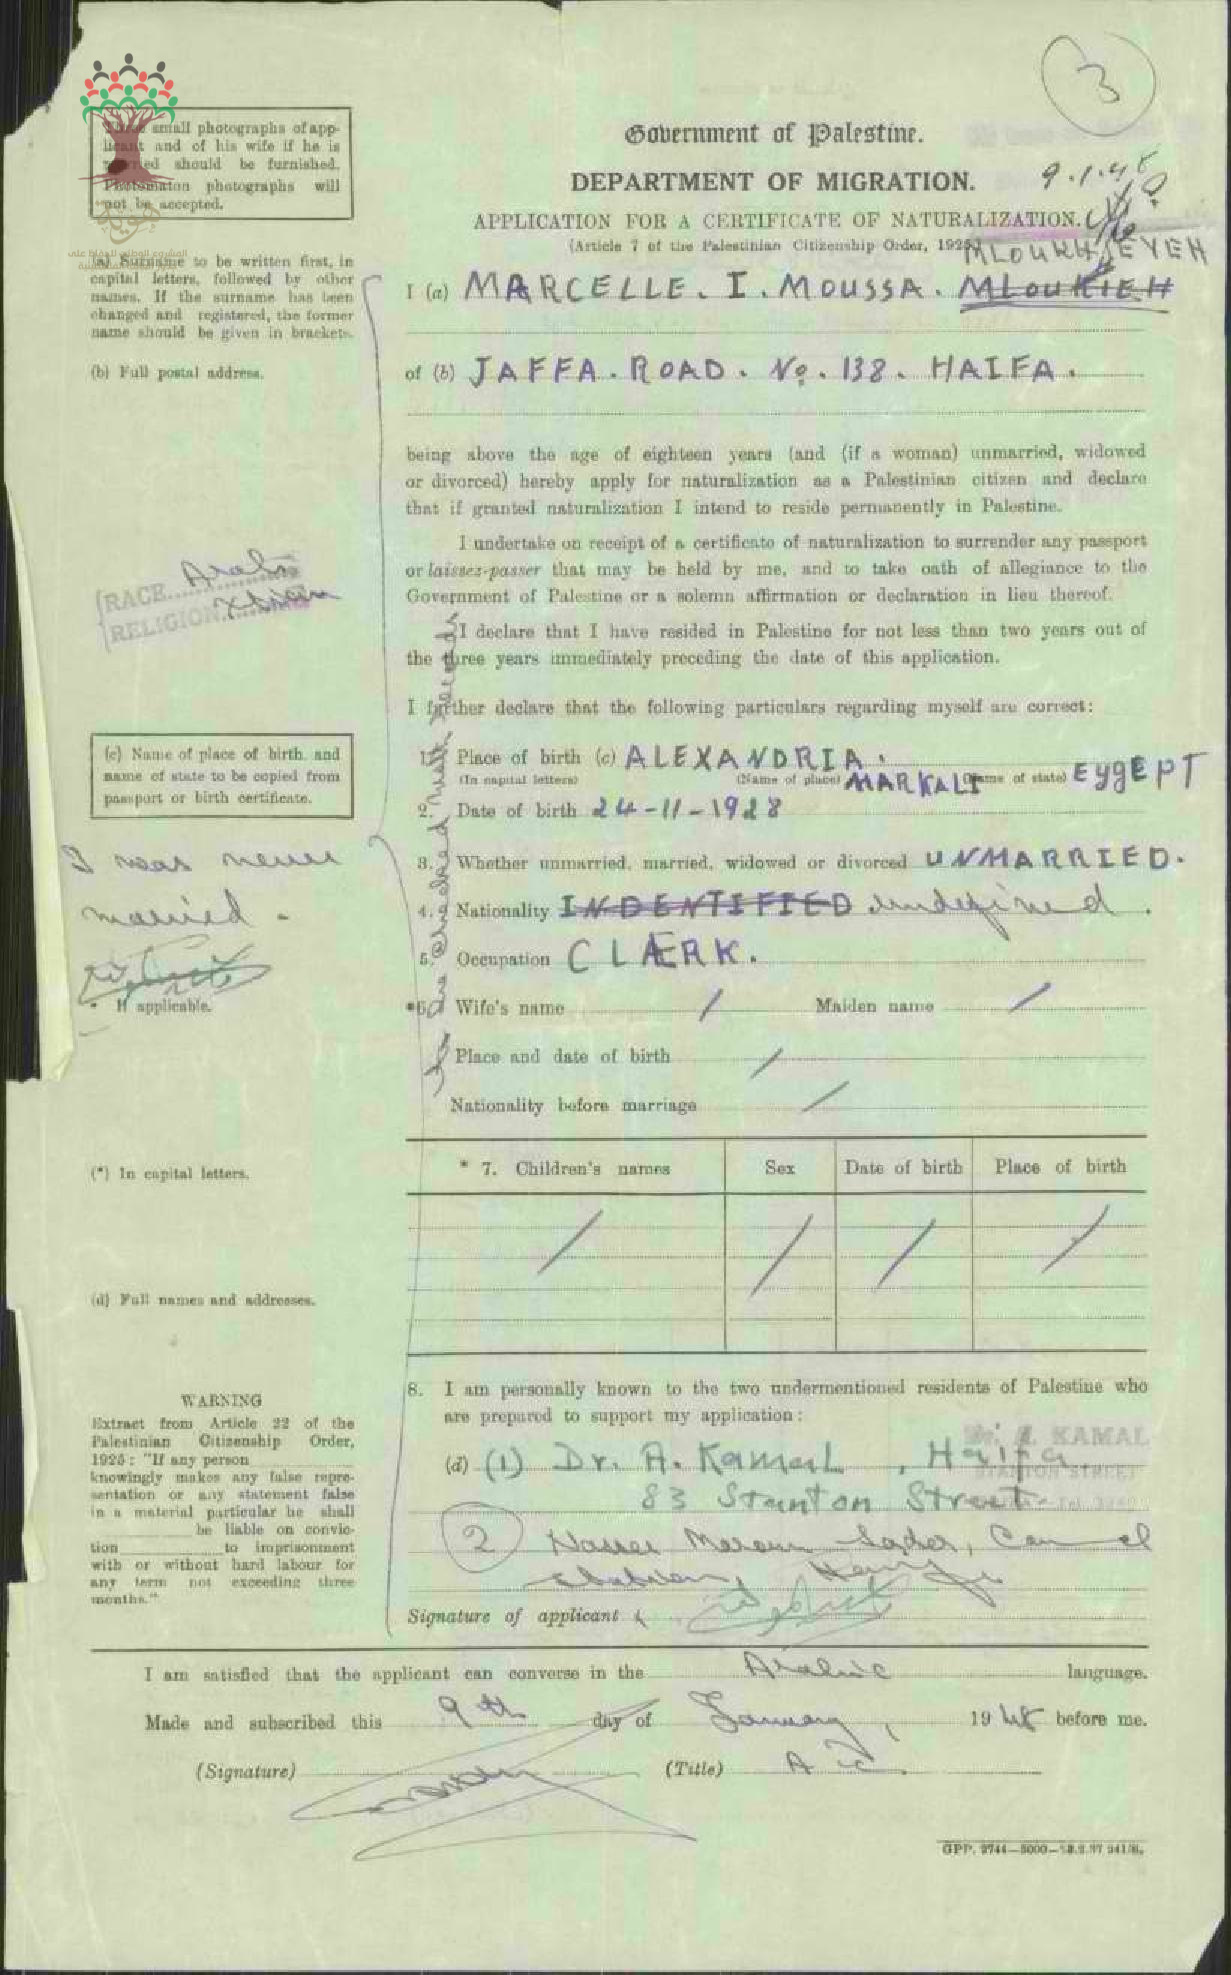 3
Three small photographs of app-
licant and of his wife if he is
married should be furnished.
Photomaton photographs will
not be accepted.
Government of Palestine.
DEPARTMENT OF MIGRATION.
9.1.48
APPLICATION FOR A CERTIFICATE OF NATURALIZATION.
(Article 7 of the Palestinian Citizenship Order, 1925)
MLOUKHIEYEH
(a) Surname to be written first, in
capital letters, followed by other
names. If the surname has been
changed and registered, the former
name should be given in brackets.
I (a) MARCELLE. I. MOUSSA. MLOUKIEH
(b) Full postal address.
of (b) JAFFA. ROAD. No. 138. HAIFA.
being above the age of eighteen years (and (if a woman) unmarried, widowed
or divorced) hereby apply for naturalization as a Palestinian citizen and declare
that if granted naturalization I intend to reside permanently in Palestine.
I undertake on receipt of a certificate of naturalization to surrender any passport
or laissez-passer that may be held by me, and to take oath of allegiance to the
Government of Palestine or a solemn affirmation or declaration in lieu thereof.
RACE Arab
RELIGION Xtian
I declare that I have resided in Palestine for not less than two years out of
the three years immediately preceding the date of this application.
I further declare that the following particulars regarding myself are correct:
(c) Name of place of birth and
name of state to be copied from
passport or birth certificate.
1. Place of birth (c) ALEXANDRIA.
(In capital letters) (Name of place) MARKALI (Name of state) EYgEPT
2. Date of birth 24-11-1928
3. Whether unmarried, married, widowed or divorced UNMARRIED.
I was never
married.
4. Nationality INDENTIFIED undefined.
5. Occupation CLÆRK.
* If applicable.
*6. Wife's name / Maiden name /
Place and date of birth /
Nationality before marriage /
(*) In capital letters.
* 7. Children's names Sex Date of birth Place of birth
/ / / /
(d) Full names and addresses.
WARNING
Extract from Article 22 of the
Palestinian Citizenship Order,
1925: "If any person
knowingly makes any false repre-
sentation or any statement false
in a material particular he shall
be liable on convic-
tion to imprisonment
with or without hard labour for
any term not exceeding three
months."
8. I am personally known to the two undermentioned residents of Palestine who
are prepared to support my application:
Dr. A. KAMAL
STANTON STREET
(d) (1) Dr. A. Kamal, Haifa
83 Stanton Street
2
Signature of applicant
I am satisfied that the applicant can converse in the Arabic language.
Made and subscribed this 9th day of January, 1948 before me.
(Signature) (Title)